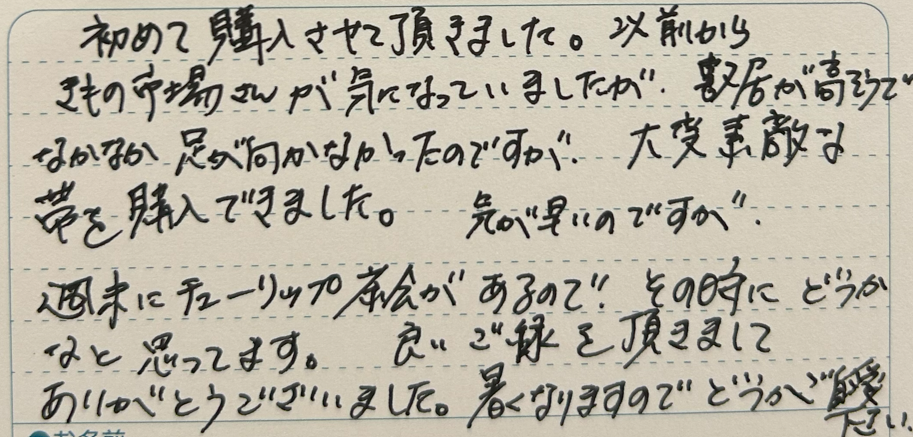 初めて購入させて頂きました。以前から
きもの市場さんが気になっていましたが、敷居が高そうで
なかなか足が向かなかったのですが、大変素敵な
帯を購入できました。気が早いのですが、
週末にチューリップ茶会があるので!その時にどうか
なと思ってます。良いご縁を頂きまして
ありがとうございました。暑くなりますのでどうかご自愛
下さい。
お名前